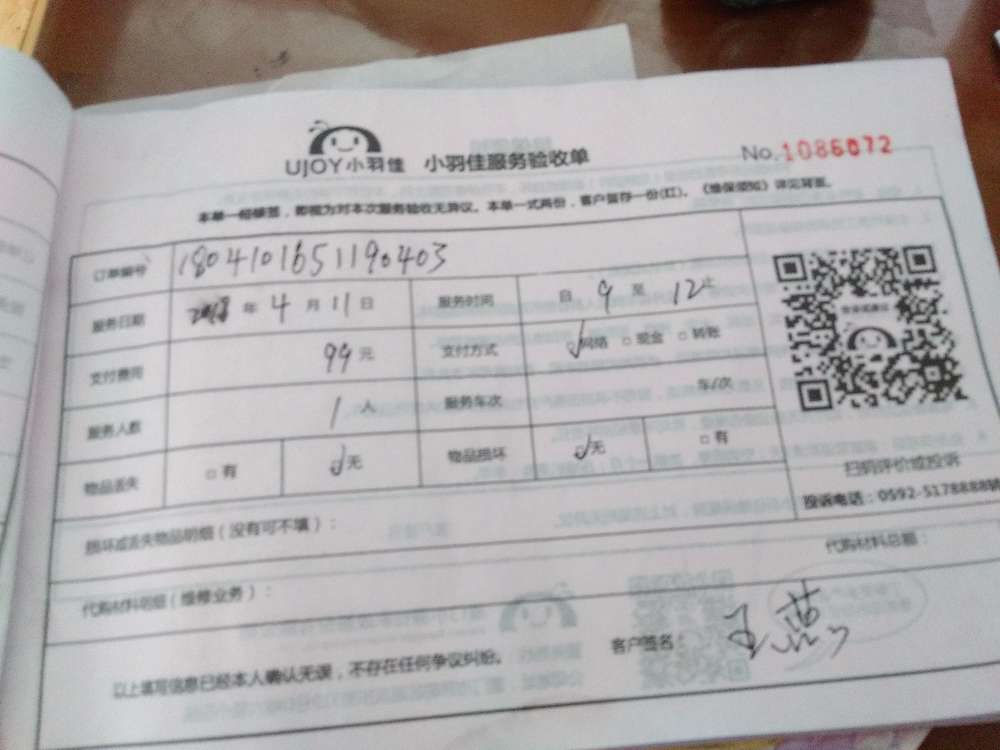 UJOY小羽佳 小羽佳服务验收单 No.1086072
本单一经签签，即视为对本次服务验收无异议。本单一式两份，客户留存一份(红)。《维保须知》详见背面。
订单编号 1804101651190403
服务日期 2018 年 4 月 11 日 服务时间 自 9 至 12
支付费用 99 元 支付方式 网络 □ 现金 □ 转账
服务人数 1 人 服务车次 车/次
物品丢失 □ 有 无 物品损坏 无 □ 有
扫码评价或投诉
投诉电话：0592-5178888转
损坏或丢失物品明细（没有可不填）：
代购材料明细（维修业务）： 代购材料总额：
以上填写信息已经本人确认无误，不存在任何争议纠纷。 客户签名：